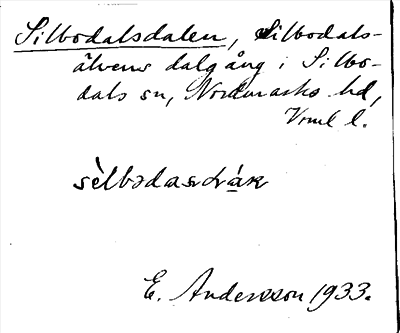 Silbodalsdalen, Silbodals-
älvens dalgång i Silbo-
dals sn, Nordmarks hd,
Vrml l.
E. Andersson 1933.